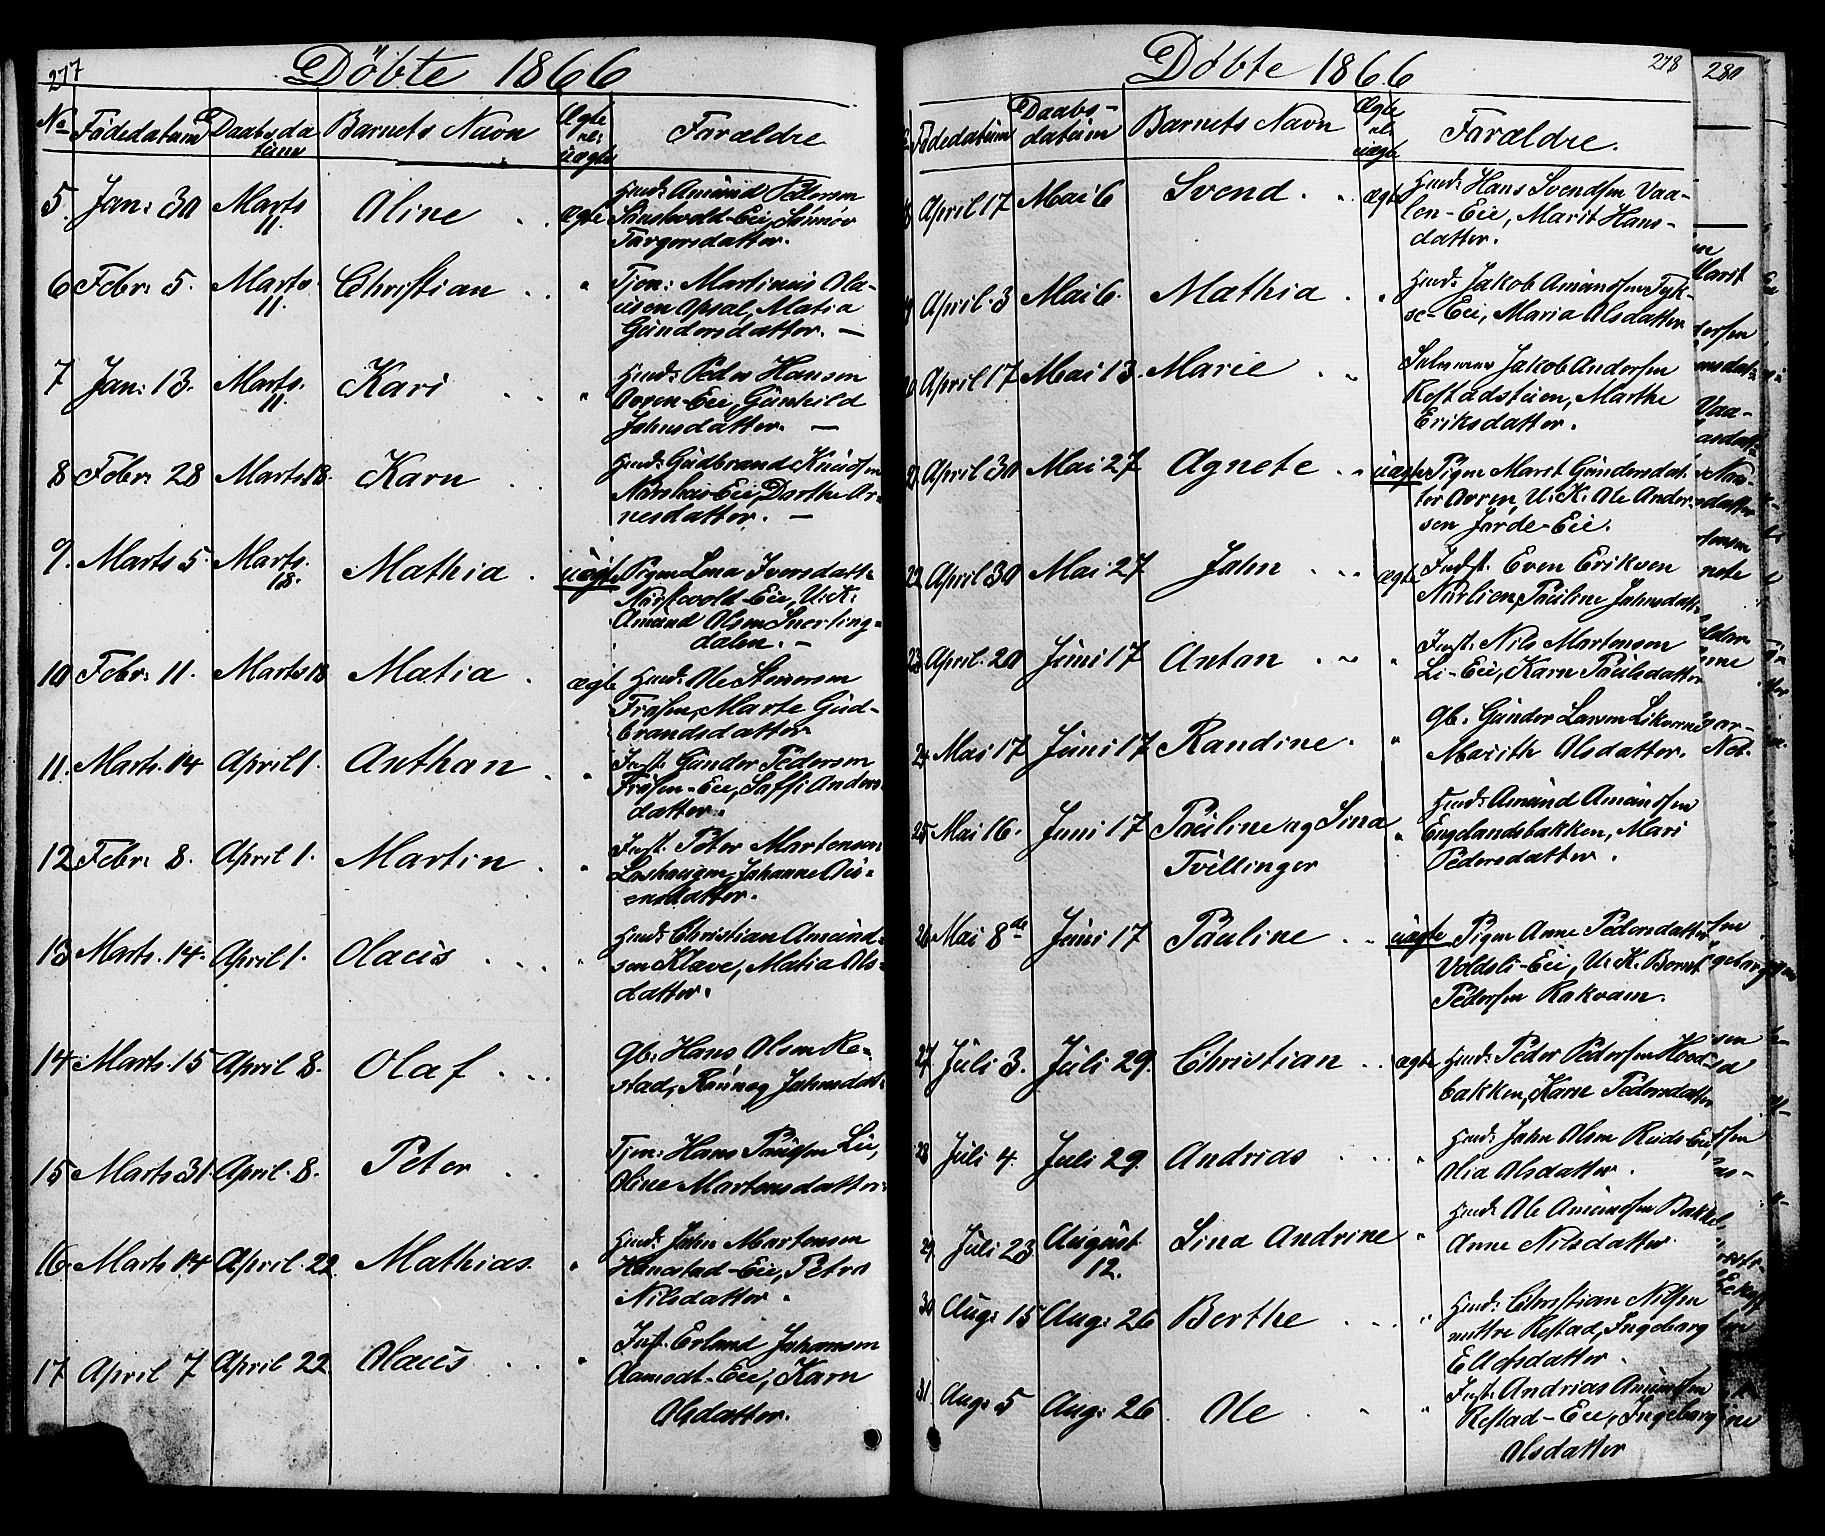 277
Döbte 1866
No Födedatum Daabsda
tum Barnets Navn Ægte
el.
uægte Foræeldre
5. Jan: 30 Marts
11. Oline . . ægte Huusm: Amund Pedersen
Eie,
Torgersdatter.
6 Febr: 5. Marts
11. Christian . . " Tjen: Martinus Ola-
usen Opsal, Matia
Gundersdatter. —
7 Jan: 13. Marts.
11. Kari . . " Huusm: Peder Hansen
Ovren-Eie, Gunhild
Johnsdatter. —
8 Febr: 28 Marts. 18. Karn . . Huusm: Gudbrand Knudsen
Eie, Dorthe Ar-
nesdatter. —
9. Marts 5. Marts.
18. Mathia . uægte Pigen Lena Iversdatt:
Eie, U: K:
Amund Olsen Snerting-
dalen. —
10 Febr: 11. Marts 18 Matia . ægte Huusm: Ole
Frøsen, Marte Gud-
brandsdatter
11. Marts. 14 April 1. Anthon . " Inst: Gunder Pedersen
Frøsen-Eie, Soffi Anders-
datter.
12 Febr: 8. April 1. Martin . " Inst: Peter Martensen
Johanne
datter.
13 Marts. 14. April 1. Olaus . . . " Huusm: Christian Amund-
sen Klave, Matia Ols-
datter.
14 Marts. 15 April 8. Olaf . . . Gb: Hans Olsen Re-
stad, Rønnog Johnsdat-
15 Marts 31. April. 8. Peter . . Tjen: Hans Paulsen Lie,
Oline Martensdatter.
16. Marts 14 April. 22. Mathias " Huusm: John Martensen
Honstad-Eie, Petra
Nilsdatter.
17 April 7 April 22. Olaus . . " Inst: Erland Johansen
Aamodt-Eie, Karn
Olsdatter.
278
Döbte 1866
Födedatum Daabs-
datum Barnets Navn Ægte
el.
uægte Foræeldre.
April 17 Mai 6 Svend . . ægte Huusm: Hans Svendsen Vaa-
len-Eie, Marit Hans-
datter.
April. 3 Mai 6. Mathia . " Huusm: Jakob Amundsen Tyk-
se-Eie, Maria Olsdatter
April 17 Mai 13. Marie . " Jakob Andersen
Restadstuen, Marthe
Eriksdatter.
April 30 Mai 27 Agnete . . uægte Pigen Maret Gundersdat-
ter Ovren, U: K: Ole Ander-
sen Jørde-Eie.
22 April 30 Mai 27 John . . . ægte Inst: Even Eriksen
Nørlien, Pauline Johnsdatt:
23 April. 20 Juni 17 Anton . . " Inst: Nils Martensen
Li-Eie, Karn Paulsdatter
24 Mai 17 Juni 17 Randine . " Gb: Gunder Larsen
Marith Olsdatter.
25 Mai 16. Juni 17 Pauline og Lina
Tvillinger " Huusm: Amund Amundsen
Englandsbakken, Mari
Pedersdatter.
26 Mai 8de Juni 17 Pauline . . uægte Pigen Anne Pedersdatter
Voldsli-Eie, U: K: Bernt
Pedersen Rakvam.
27 Juli 3. Juli 29. Christian . . ægte Huusm: Peder Pedersen
bakken, Karn Pedersdatter
28 Juli 4. Juli 29. Andrias . . . " Huusm: John Olsen Ruds-Eie,
Olia Olsdatter.
29 Juli 23 August
12. Lina Andrine " Huusm: Ole Amundsen Bakken,
Anne Nilsdatter
30 Aug: 15 Aug: 26 Berthe . . . " Huusm: Christian Nilsen
Restad, Ingeborg
Ellefsdatter.
31. Aug: 5 Aug: 26 Ole . " Inst: Andrias Amundsen
Restad-Eie, Ingeborg
Olsdatter
280